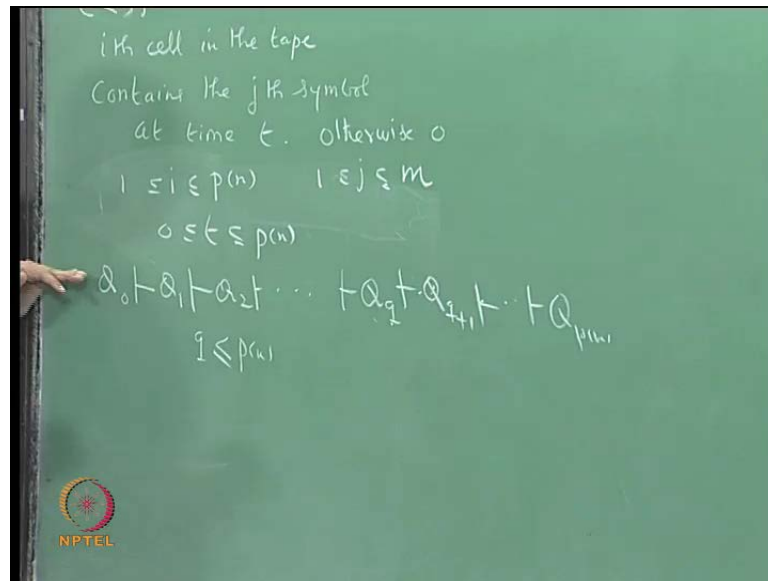 ith cell in the tape
Contains the jth symbol
at time t. otherwise 0
1 ≤ i ≤ p(n) 1 ≤ j ≤ m
0 ≤ t ≤ p(n)
Q₀ ⊢ Q₁ ⊢ Q₂ ⊢ ... ⊢ Q_q ⊢ Q_q+1 ⊢ .. ⊢ Q_p(n)
q ≤ p(n)
NPTEL